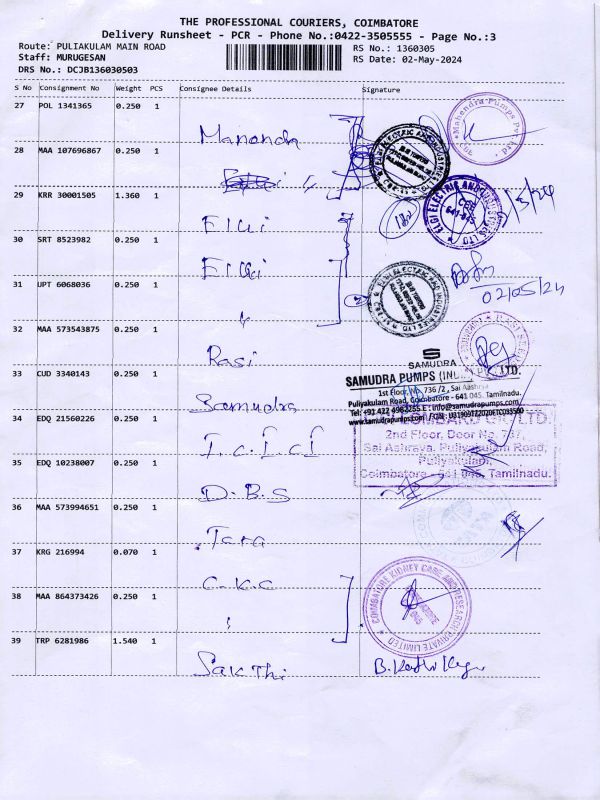 THE PROFESSIONAL COURIERS, COIMBATORE
Delivery Runsheet - PCR - Phone No.:0422-3505555 - Page No.:3
Route: PULIAKULAM MAIN ROAD
RS No.: 1360305
Staff: MURUGESAN
RS Date: 02-May-2024
DRS No.: DCJB136030503
S No Consignment No Weight PCS Consignee Details Signature
27 POL 1341365 0.250 1
28 MAA 107696867 0.250 1
29 KRR 30001505 1.360 1
Elgi
30 SRT 8523982 0.250 1
Elgi
02/05/24
31 UPT 6068036 0.250 1
"
32 MAA 573543875 0.250 1
Rasi
SAMUDRA
SAMUDRA PUMPS (INDIA) P. LTD.
33 CUD 3340143 0.250 1
Samudra
1st Floor, No. 736 /2, Sai Aashraya
Puliyakulam Road, Coimbatore - 641 045. Tamilnadu.
Tel: +91 422 4982255 E : info@samudrapumps.com,
www.samudrapumps.com
34 EDQ 21560226 0.250 1
I.C.I.C.I
LOMBARD GIC LTD.
2nd Floor, Door No. 737,
Sai Ashraya, Puliyakulam Road,
Puliyakulam,
Coimbatore - 641 045, Tamilnadu.
35 EDQ 10238007 0.250 1
D.B.S
36 MAA 573994651 0.250 1
Tara
37 KRG 216994 0.070 1
C.K.C
COIMBATORE KIDNEY CARE AND RESEARCH PRIVATE LIMITED
38 MAA 864373426 0.250 1
"
39 TRP 6281986 1.540 1
Sakthi